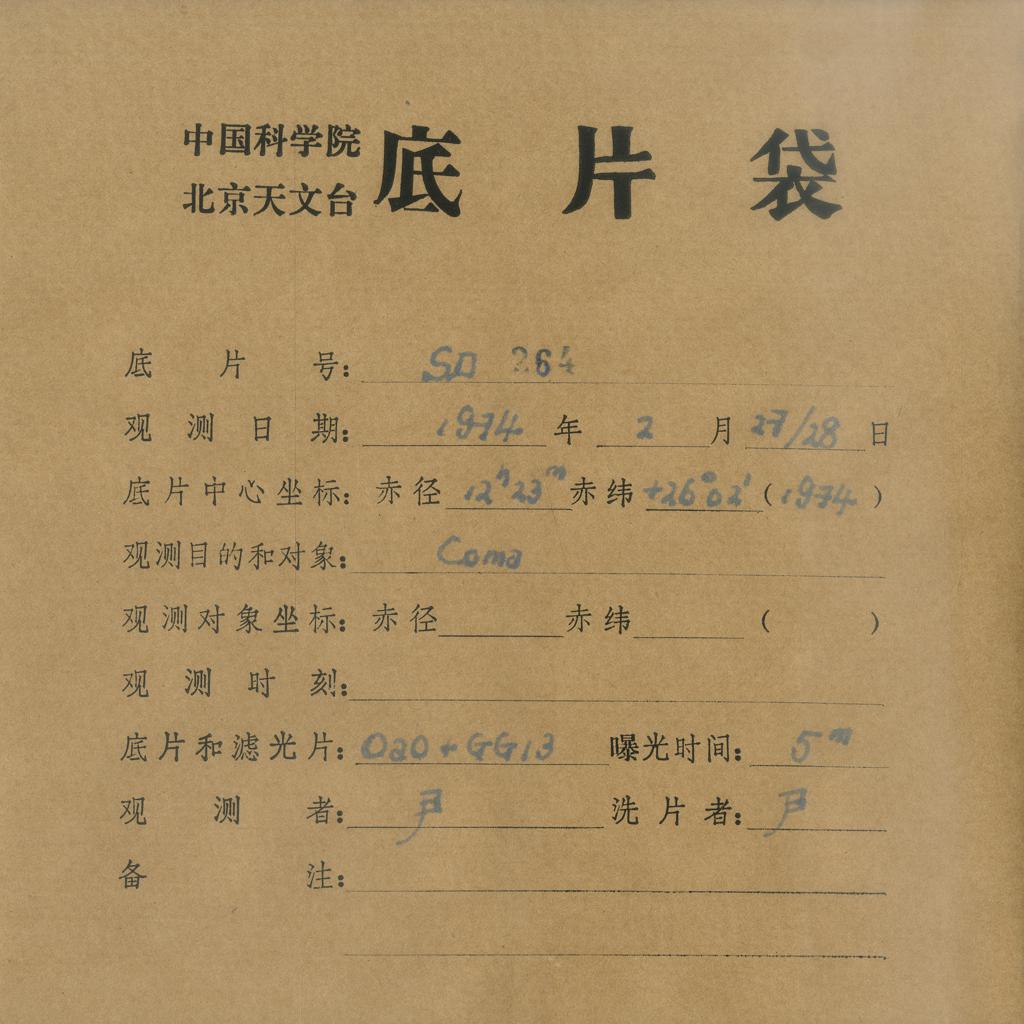 中国科学院
北京天文台
底片袋
底片号: SD 264
观测日期: 1974 年 2 月 27/28 日
底片中心坐标: 赤径 12ʰ23ᵐ 赤纬 +26°02′ (1974)
观测目的和对象: Coma
观测对象坐标: 赤径 赤纬 ( )
观测时刻:
底片和滤光片: OaO + GG13 曝光时间: 5ᵐ
观测者: 尹 洗片者: 尹
备注: